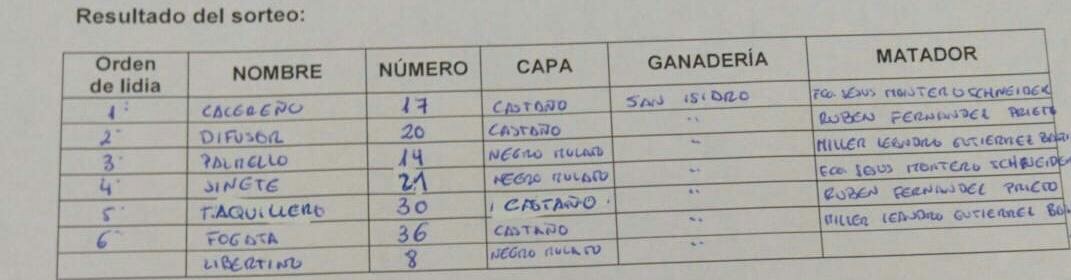 Resultado del sorteo:
Orden de lidia NOMBRE NÚMERO CAPA GANADERÍA MATADOR
1º CACEREÑO 17 CASTAÑO SAN ISIDRO FCO. JESUS MONTERO SCHNEIDER
2º DIFUSOR 20 CASTAÑO " RUBEN FERNANDEZ PRIETO
3º 14 NEGRO MULATO " MILLER LEANDRO GUTIERREZ
4º JINETE 21 NEGRO MULATO " FCO. JESUS MONTERO SCHNEIDER
5º TAQUILLERO 30 CASTAÑO " RUBEN FERNANDEZ PRIETO
6º FOGATA 36 CASTAÑO " MILLER LEANDRO GUTIERREZ
LIBERTINO 8 NEGRO MULATO "